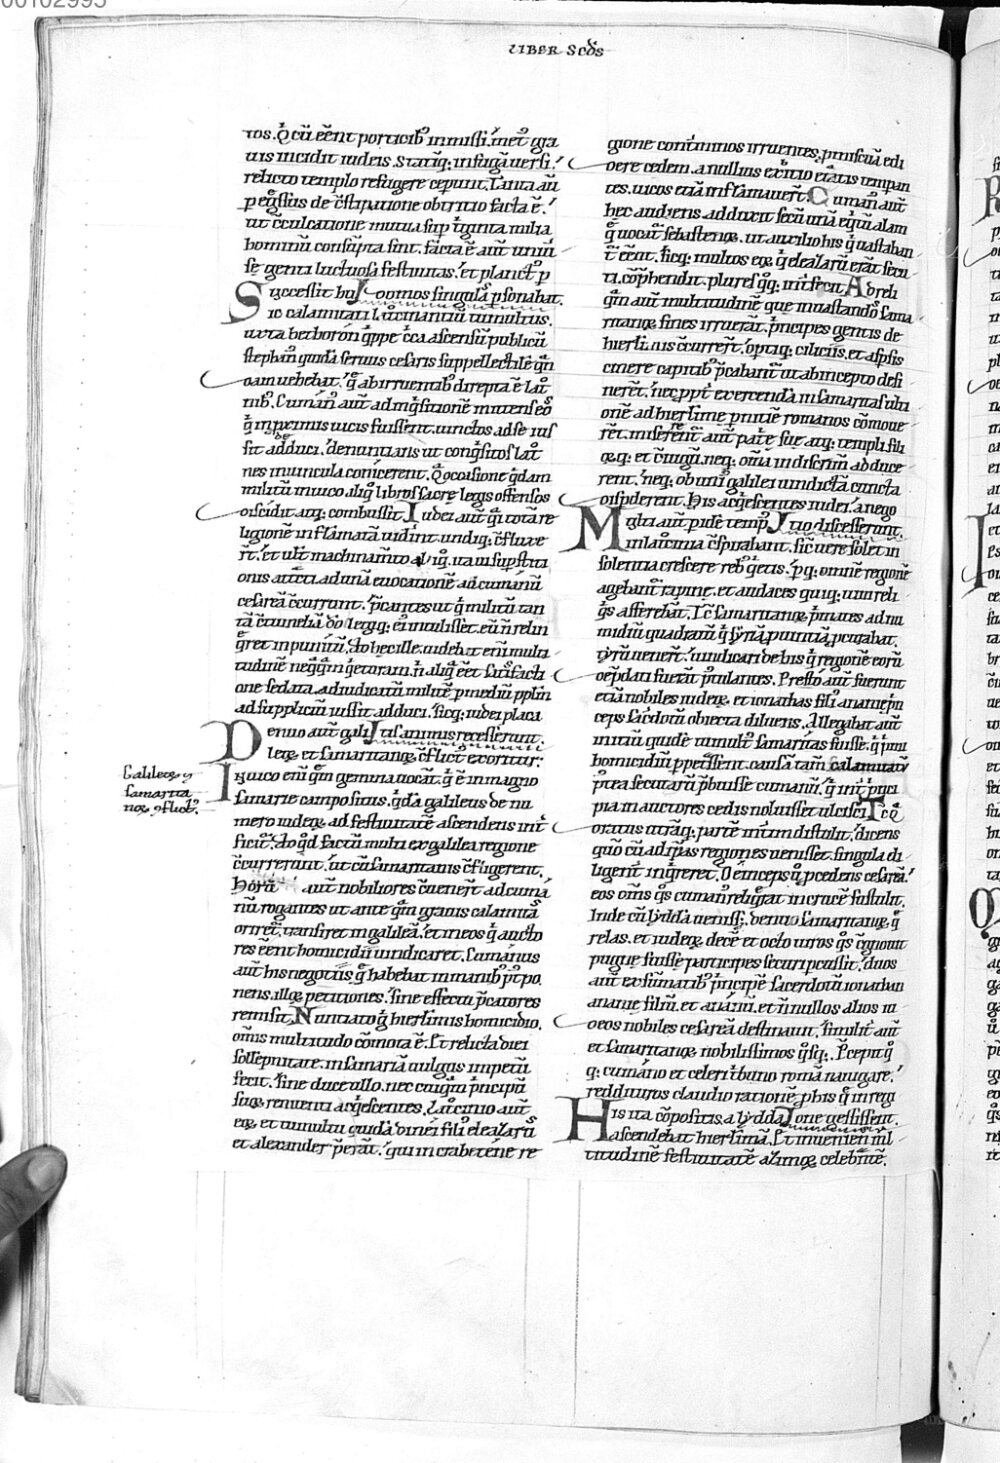 LIBER SCDS
tos. Q̇ cū eēnt porticib; inmissi. met gra
uis incidit iudeis. Statiq; infugā uersi.
relicto templo refugere ceperunt. Tanta aū
ut cculcatione mutua sup triginta milia
hominū consūpta sint. facta ē aut uniū
se genti luctuosa festiuitas. et planct p
domos singulas psonabat.
Successit huic calamitati latrocinantiū tumultus.
iuxta bethoron qppe circa ascensū publicū
stephan quidā seruus cesaris suppellectilē qn
dam uehebat. q ab irruentib direpta ē lat
nib. Cuman aut ad inqsitionē mittens eos
q inproximis uicis fuissent. uinctos ad se ius
sit adduci. denuntians ut conqsitos lat
nes inuincula conicerent. Q occasione qdam
militū inuico aliq libros sacre legis offensos
discidit atq; combussit. Iudei aut qsi tota re
ligionē inflāmatā uidint. undiq; cfluxe
onis attracti ad unā euocationē ad cumanū
cesareā ccurrunt. pcantes ut q militū tan
tā ctumeliā do legiq; ei intulisset. eū n relin
qret inpunitū. Ho he cille. uidebat eni multi
tudinē neqqm qeturam. n aliq eēt satisfacti
one sedata. adiudicatū militē p mediū pplm
ad suppliciū iussit adduci. sicq; iudei placa
tis animis recesserunt.
Denuo aut galileȩ et samaritanȩ cflict exoritur:
In uico eni qm gemina uocat. q ē in magno
samarie campo situs. qdā galileus de nu
mero iudeȩ ad festiuitatē ascendens int
ficit. do qd factū multi ex galilea regione
ccurrerunt. ut cū samaritanis cfligerent.
Horū aut nobiliores cuenert ad cuma
nū rogantes ut ante qm grauis calamitas
oriret. transiret in galileā. et in eos q aucto
res eēnt homicidii uindicaret. Cumanus
aut his negotiis q habebat in manib pt po
nens. illoȩ petitiones. sine effectu pcatores
remisit. Nuntiato q hierlimis homicidio.
omis multitudo cmota ē. Et relicta diei
sollepnitate. in samariā uulgus impetū
fecit. sine duce ullo. nec cuiqm pncipū
suoȩ renuenti acqescentes. Latrocinio aut
eoȩ et tumultu quidā dinei fili eleazarus
et alexander perant. qui incrabetene re
Galileoȩ et
samarita
noȩ cflict.
gione contminos irruentes. pmiscuā edi
dere cedem. a nullius exitio etatis tempan
tes. uicos etiā inflāmauert. Cuman aut
hec audiens adduxit secū unā equitū alam
q uocat sebastene. ut auxilio his q uastaban
t eēnt. sicq; multos eoȩ q eleazarū erāt secu
ti cphendit. plures qq; intfecit. Ad reli
qm aut multitudinē que in uastandos sama
ritanoȩ fines irruerat. pncipes gentis de
hierlimis ccurrert. optiq; ciliciis. et aspsis
cinere capitib pcabant ut ab incepto desi
nerēt. nec ppt exercendā in samaritas ulti
onē ad hierlime pnitiē romanos cmoue
rēt. miserērent aut patrie sue atq; templi. fili
oȩq; et ciugū. neq; omia in discrim adduce
rent. neq; ob uni galilei uindictā cuncta
dispderent. His acqescentes iudei. a nego
tio discesserunt.
Multi aut p idē temp in latrocinia cspirabant. sic uere solet in
solentia crescere reb qetis. pq; omnē regionē
agebant rapine. et audaces quiq; uim reli
qs afferebat. Tc samaritanoȩ pmates ad nu
midiū quadratū q syriā puintiā pcurabat.
tyrū uenert. uindicari de his q regionē eorū
depdati fuerant postulantes. Presto aut fuerunt
etiā nobiles iudeoȩ. et ionathas fili ananie pn
ceps sacdotū obiecta diluens. Allegabat aut
initiū quidē tumult samaritas fuisse. q pmi
homicidiū ppetassent. causā tam calamitatū
postea secutarū pbuisse cumanū. q int pnci
pia in auctores cedis noluisset ulcisci. Tc q
dratus utraq; partē intim distulit. dicens
quo cū ad ipsas regiones uenisset. singula di
ligent inqreret. Deinceps q pcedens cesareā.
eos oms qs cuman religrat in crucē sustulit.
Inde cū lyddā uenisset. denuo samaritanoȩ q
relas. et iudeoȩ decē et octo uiros qs cgnouit
pugne fuisse participes securi pcussit. duos
aut ex sūmatib pncipē sacerdotū ionathan
ananie filiū. et ananū. et nnullos alios iu
deos nobiles cesareā destinauit. similit aut
et samaritanoȩ nobilissimos qsq;. Pcepit q
q; cumano et celeri tribuno romā nauigare.
reddituros claudio rationē. p his q in regi
one gessissent.
His ita cpositis. a lydda
ascendebat hierlimā. Et inueniens mul
titudinē festiuitatē azimoȩ celebrātē.